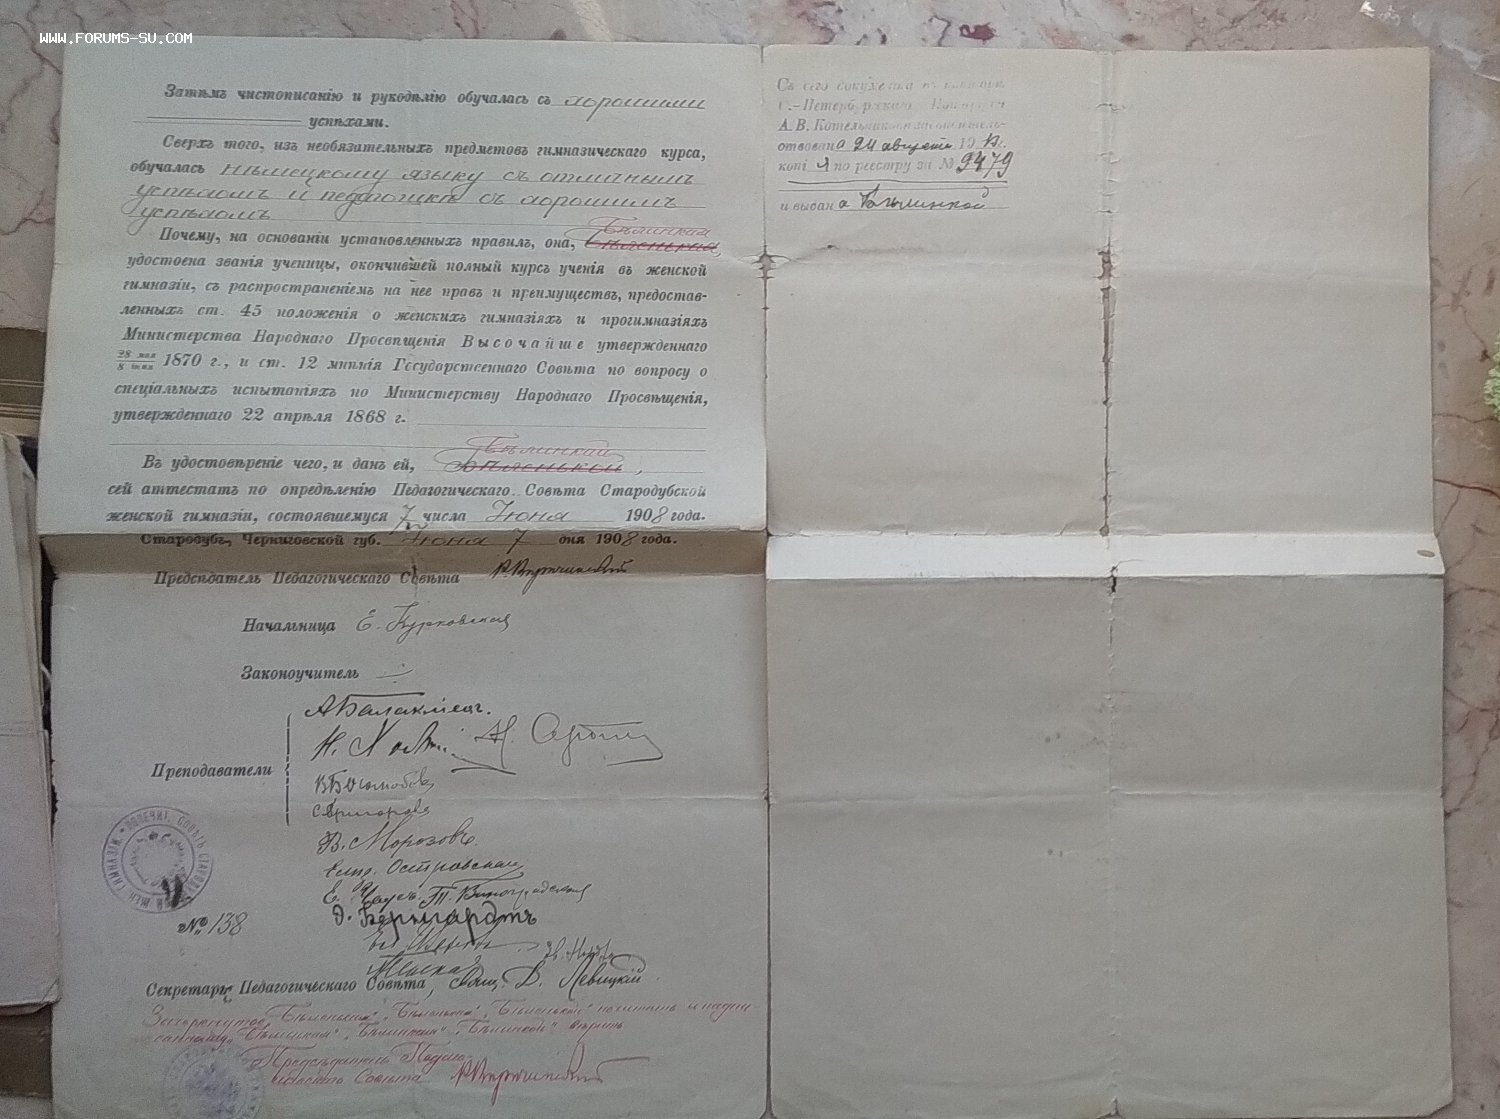 WWW.FORUMS-SU.COM
Затѣмъ чистописанію и рукодѣлію обучалась съ хорошими
успѣхами.
Сверхъ того, изъ необязательныхъ предметовъ гимназическаго курса,
обучалась нѣмецкому языку съ отличнымъ
успѣхомъ и педагогикѣ съ хорошимъ
успѣхомъ
Бѣлинкая
Почему, на основаніи установленныхъ правилъ, она, Бѣленькая,
удостоена званія ученицы, окончившей полный курсъ ученія въ женской
гимназіи, съ распространеніемъ на нее правъ и преимуществъ, предостав-
ленныхъ ст. 45 положенія о женскихъ гимназіяхъ и прогимназіяхъ
Министерства Народнаго Просвѣщенія Высочайше утвержденнаго
28 мая
8 іюня 1870 г., и ст. 12 мнѣнія Государственнаго Совѣта по вопросу о
спеціальныхъ испытаніяхъ по Министерству Народнаго Просвѣщенія,
утвержденнаго 22 апрѣля 1868 г.
Бѣлинкой
Въ удостовѣреніе чего, и данъ ей, Бѣленькой,
сей аттестатъ по опредѣленію Педагогическаго Совѣта Стародубской
женской гимназіи, состоявшемуся 7 числа Іюня 1908 года.
Стародубъ, Черниговской губ. Іюня 7 дня 1908 года.
Предсѣдатель Педагогическаго Совѣта
Начальница Е. Курковская
Законоучитель
Преподаватели
В. Морозовъ
Островская
Е. Т. Виноградская
Э. Бернгардтъ
№ 138
Секретарь Педагогическаго Совѣта, В. Левицкій
Зачеркнутое „Бѣленькая", „Бѣленькая", „Бѣленькой" не читать и надпи-
санному „Бѣлинкая", „Бѣлинкая", „Бѣлинкой" вѣрить
Предсѣдатель Педаго-
гическаго Совѣта
Съ сего документа въ конторѣ
С.-Петербургскаго Нотаріуса
А. В. Котельникова засвидѣтель-
ствована 24 августа 19
копія по реестру за № 9479
и выдана Бѣлинкой